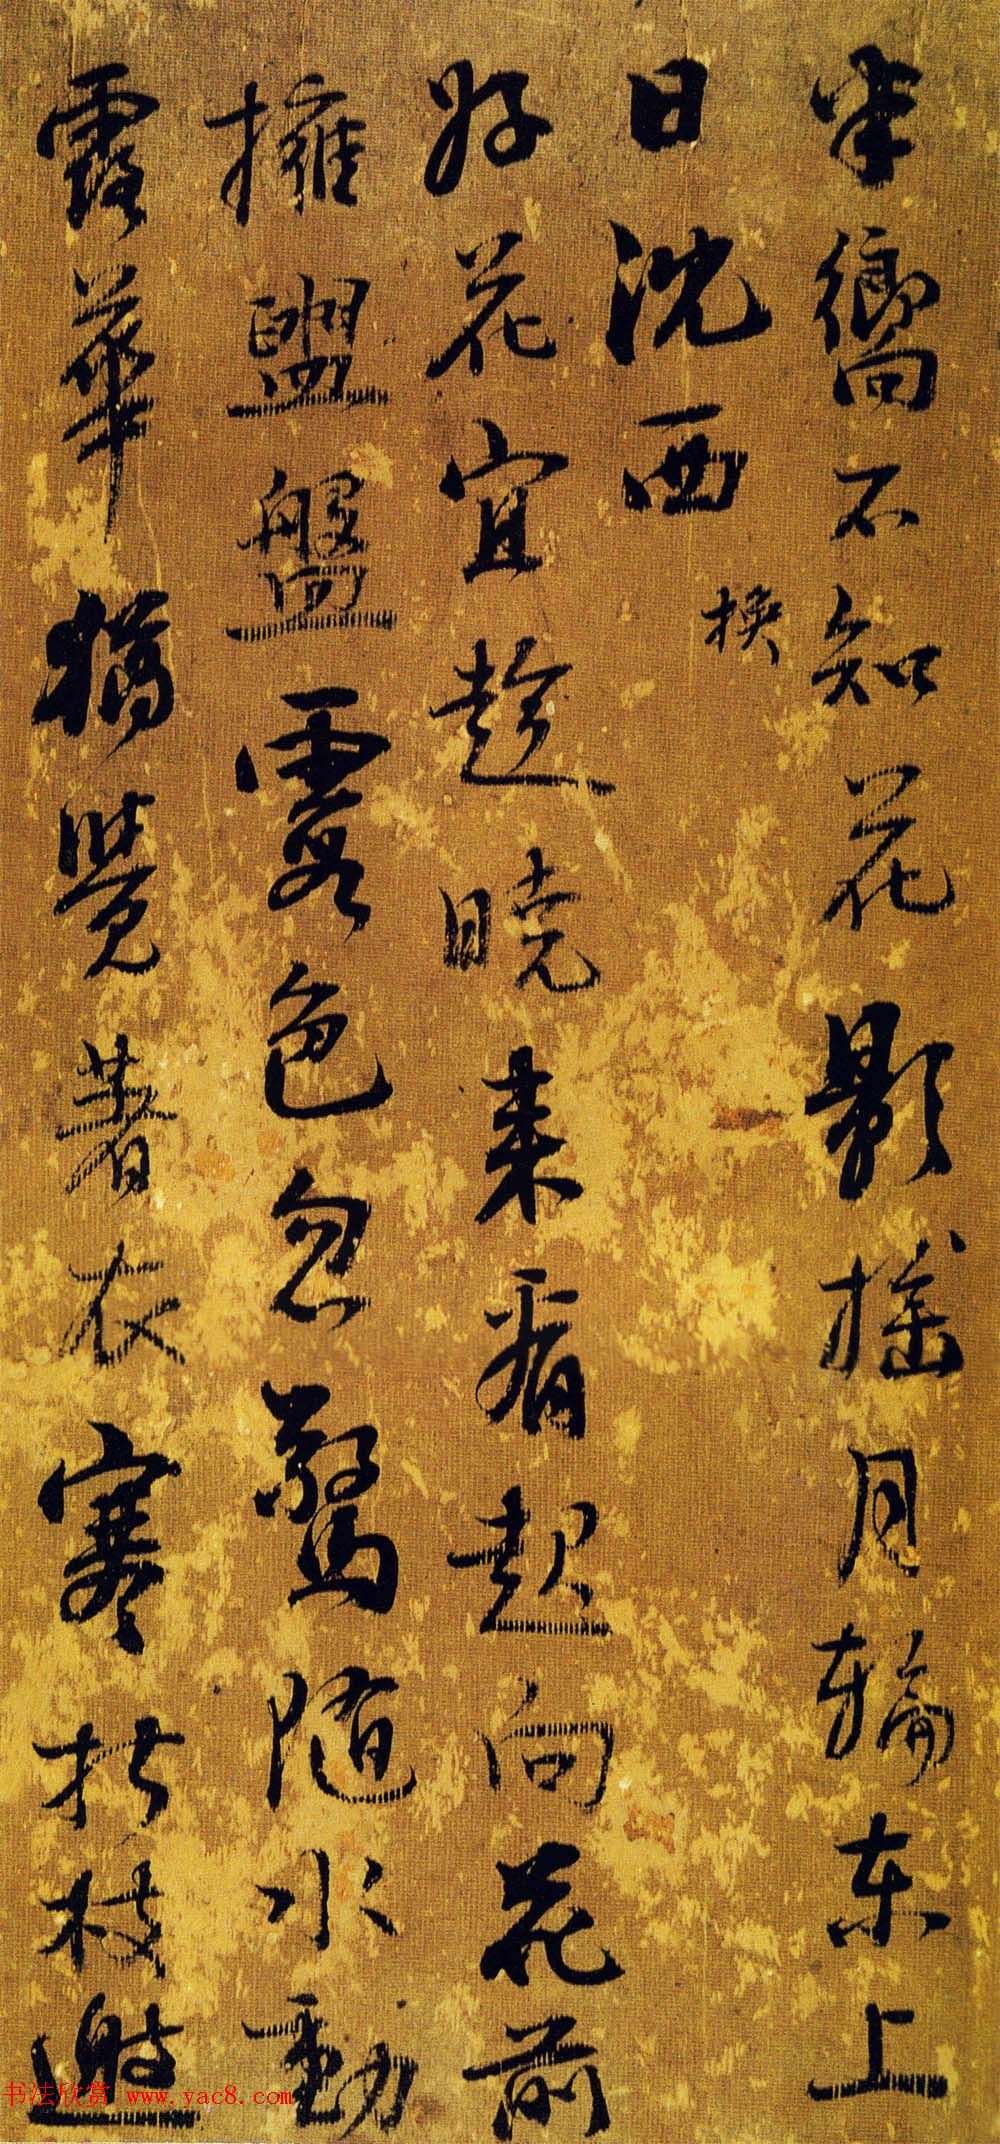 半嚮不知花影搖月輪東上
日沈西
换
好花宜趁曉来看起向花前
擁盥盤霞色忽驚随水動
露華猶覺著衣寒扶枝邀
书法欣赏 www.yac8.com